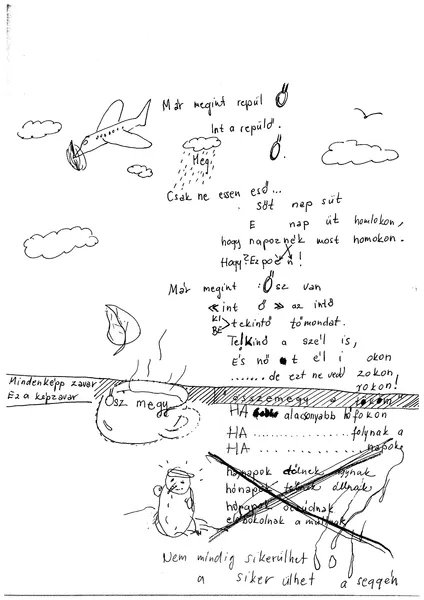 Már megint repül Ő
Int a repülő.
Ő.
Meg.
Csak ne essen eső...
Süt nap süt
E nap üt homlokon,
hogy napoznék most homokon.
Hagy? Ez poén!
Már megint : Ősz van
«int ő» az intő
KI
BE > tekintő tőmondat.
Tekinő a szél is,
És nő t él i okon
....... de ezt ne vedd zokon
rokon!
Mindenképp zavar
Ez a képzavar
Ősz megy
összemegy a
HA alacsonyabb hőfokon
HA ............... folynak a
HA ............... napok
hónapok
hónapok
hónapok
Nem mindig sikerülhet
a siker ülhet a seggén